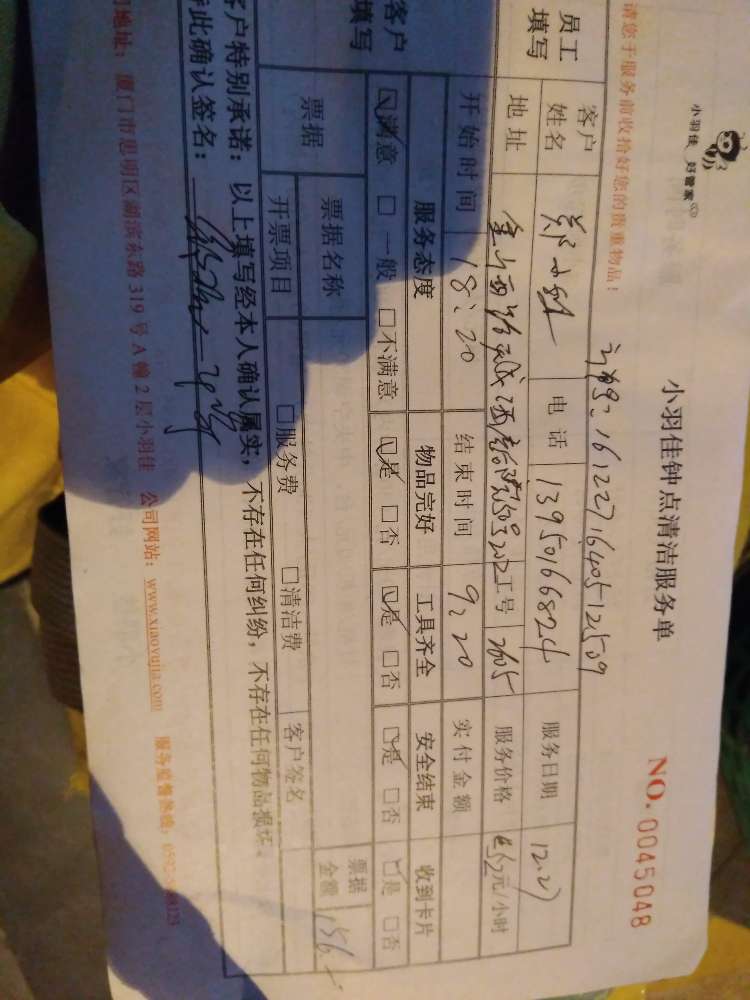 小羽佳 好管家
小羽佳钟点清洁服务单
NO. 0045048
请您于服务前收拾好您的贵重物品！
1612271640512539
员工填写
客户姓名 郑 电话 13950166824 服务日期 12.27
地址 工号 2605 服务价格 元/小时
开始时间 18:20 结束时间 9:20 实付金额
客户填写
服务态度 物品完好 工具齐全 安全结束 收到卡片
☑满意 □一般 □不满意 ☑是 □否 ☑是 □否 ☑是 □否 ☑是 □否
票据 票据名称 票据金额 156
开票项目 □服务费 □清洁费 客户签名
客户特别承诺：以上填写经本人确认属实，不存在任何纠纷，不存在任何物品损坏。
特此确认签名：
地址：厦门市思明区湖滨东路319号A幢2层小羽佳 公司网站：www.xiaoyujia.com